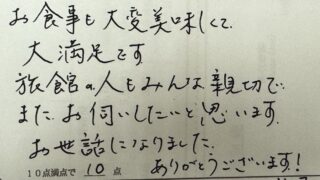 お食事も大変美味しくて、
大満足です
旅館の人もみんな親切で
また、お伺いしたいと思います。
お世話になりました。
10点満点で 10 点
ありがとうございます!